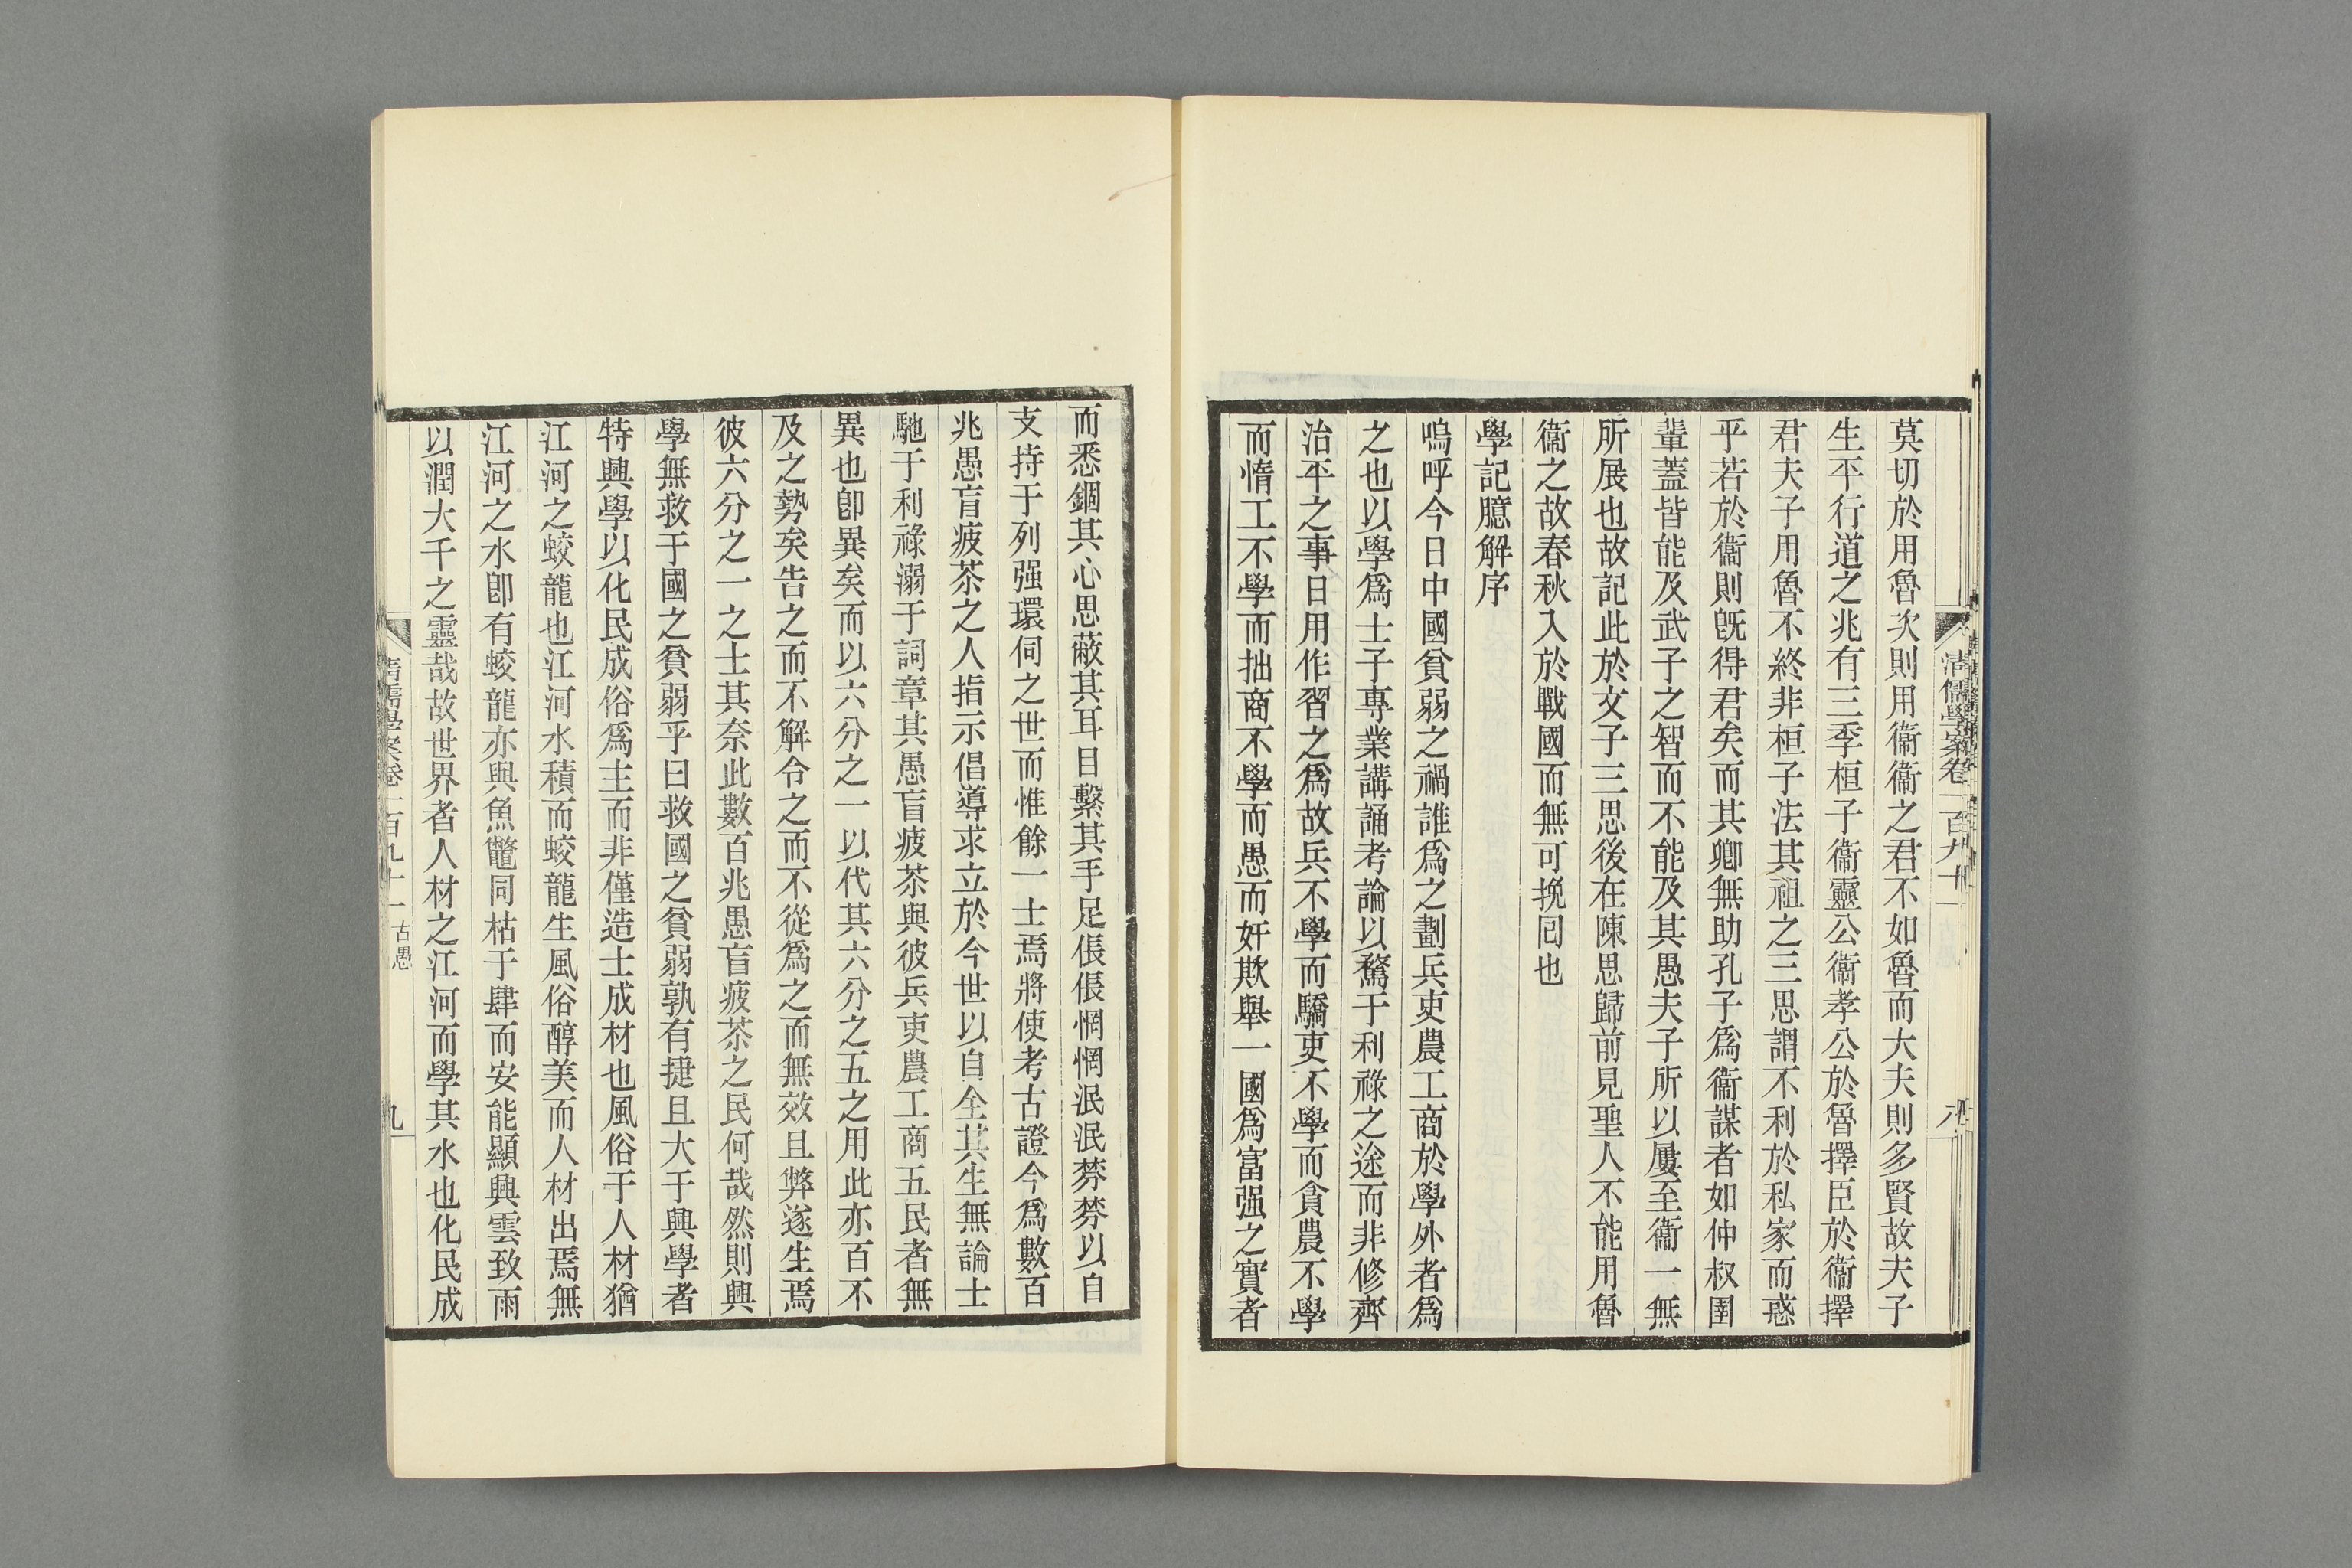 清儒學案卷一百九十一
八
莫切於用魯次則用衞衞之君不如魯而大夫則多賢故夫子
生平行道之兆有三季桓子衞靈公衞孝公於魯擇臣於衞擇
君夫子用魯不終非桓子法其祖之三思謂不利於私家而惑
乎若於衞則旣得君矣而其卿無助孔子爲衞謀者如仲叔圉
輩蓋皆能及武子之智而不能及其愚夫子所以屢至衞一無
所展也故記此於文子三思後在陳思歸前見聖人不能用魯
衞之故春秋入於戰國而無可挽囘也
學記臆解序
嗚呼今日中國貧弱之禍誰爲之劃兵吏農工商於學外者爲
之也以學爲士子專業講誦考論以騖于利祿之途而非修齊
治平之事日用作習之爲故兵不學而驕吏不學而貪農不學
而惰工不學而拙商不學而愚而奸欺舉一國爲富强之實者
而悉錮其心思蔽其耳目繫其手足倀倀惘惘泯泯棼棼以自
支持于列强環伺之世而惟餘一士焉將使考古證今爲數百
兆愚盲疲苶之人指示倡導求立於今世以自全其生無論士
馳于利祿溺于詞章其愚盲疲苶與彼兵吏農工商五民者無
異也卽異矣而以六分之一以代其六分之五之用此亦百不
及之勢矣告之而不解令之而不從爲之而無效且弊遂生焉
彼六分之一之士其奈此數百兆愚盲疲苶之民何哉然則興
學無救于國之貧弱乎曰救國之貧弱孰有捷且大于興學者
特興學以化民成俗爲主而非僅造士成材也風俗于人材猶
江河之蛟龍也江河水積而蛟龍生風俗醇美而人材出焉無
江河之水卽有蛟龍亦與魚鼈同枯于肆而安能顯興雲致雨
以潤大千之靈哉故世界者人材之江河而學其水也化民成
清儒學案卷一百九十一 古愚
九